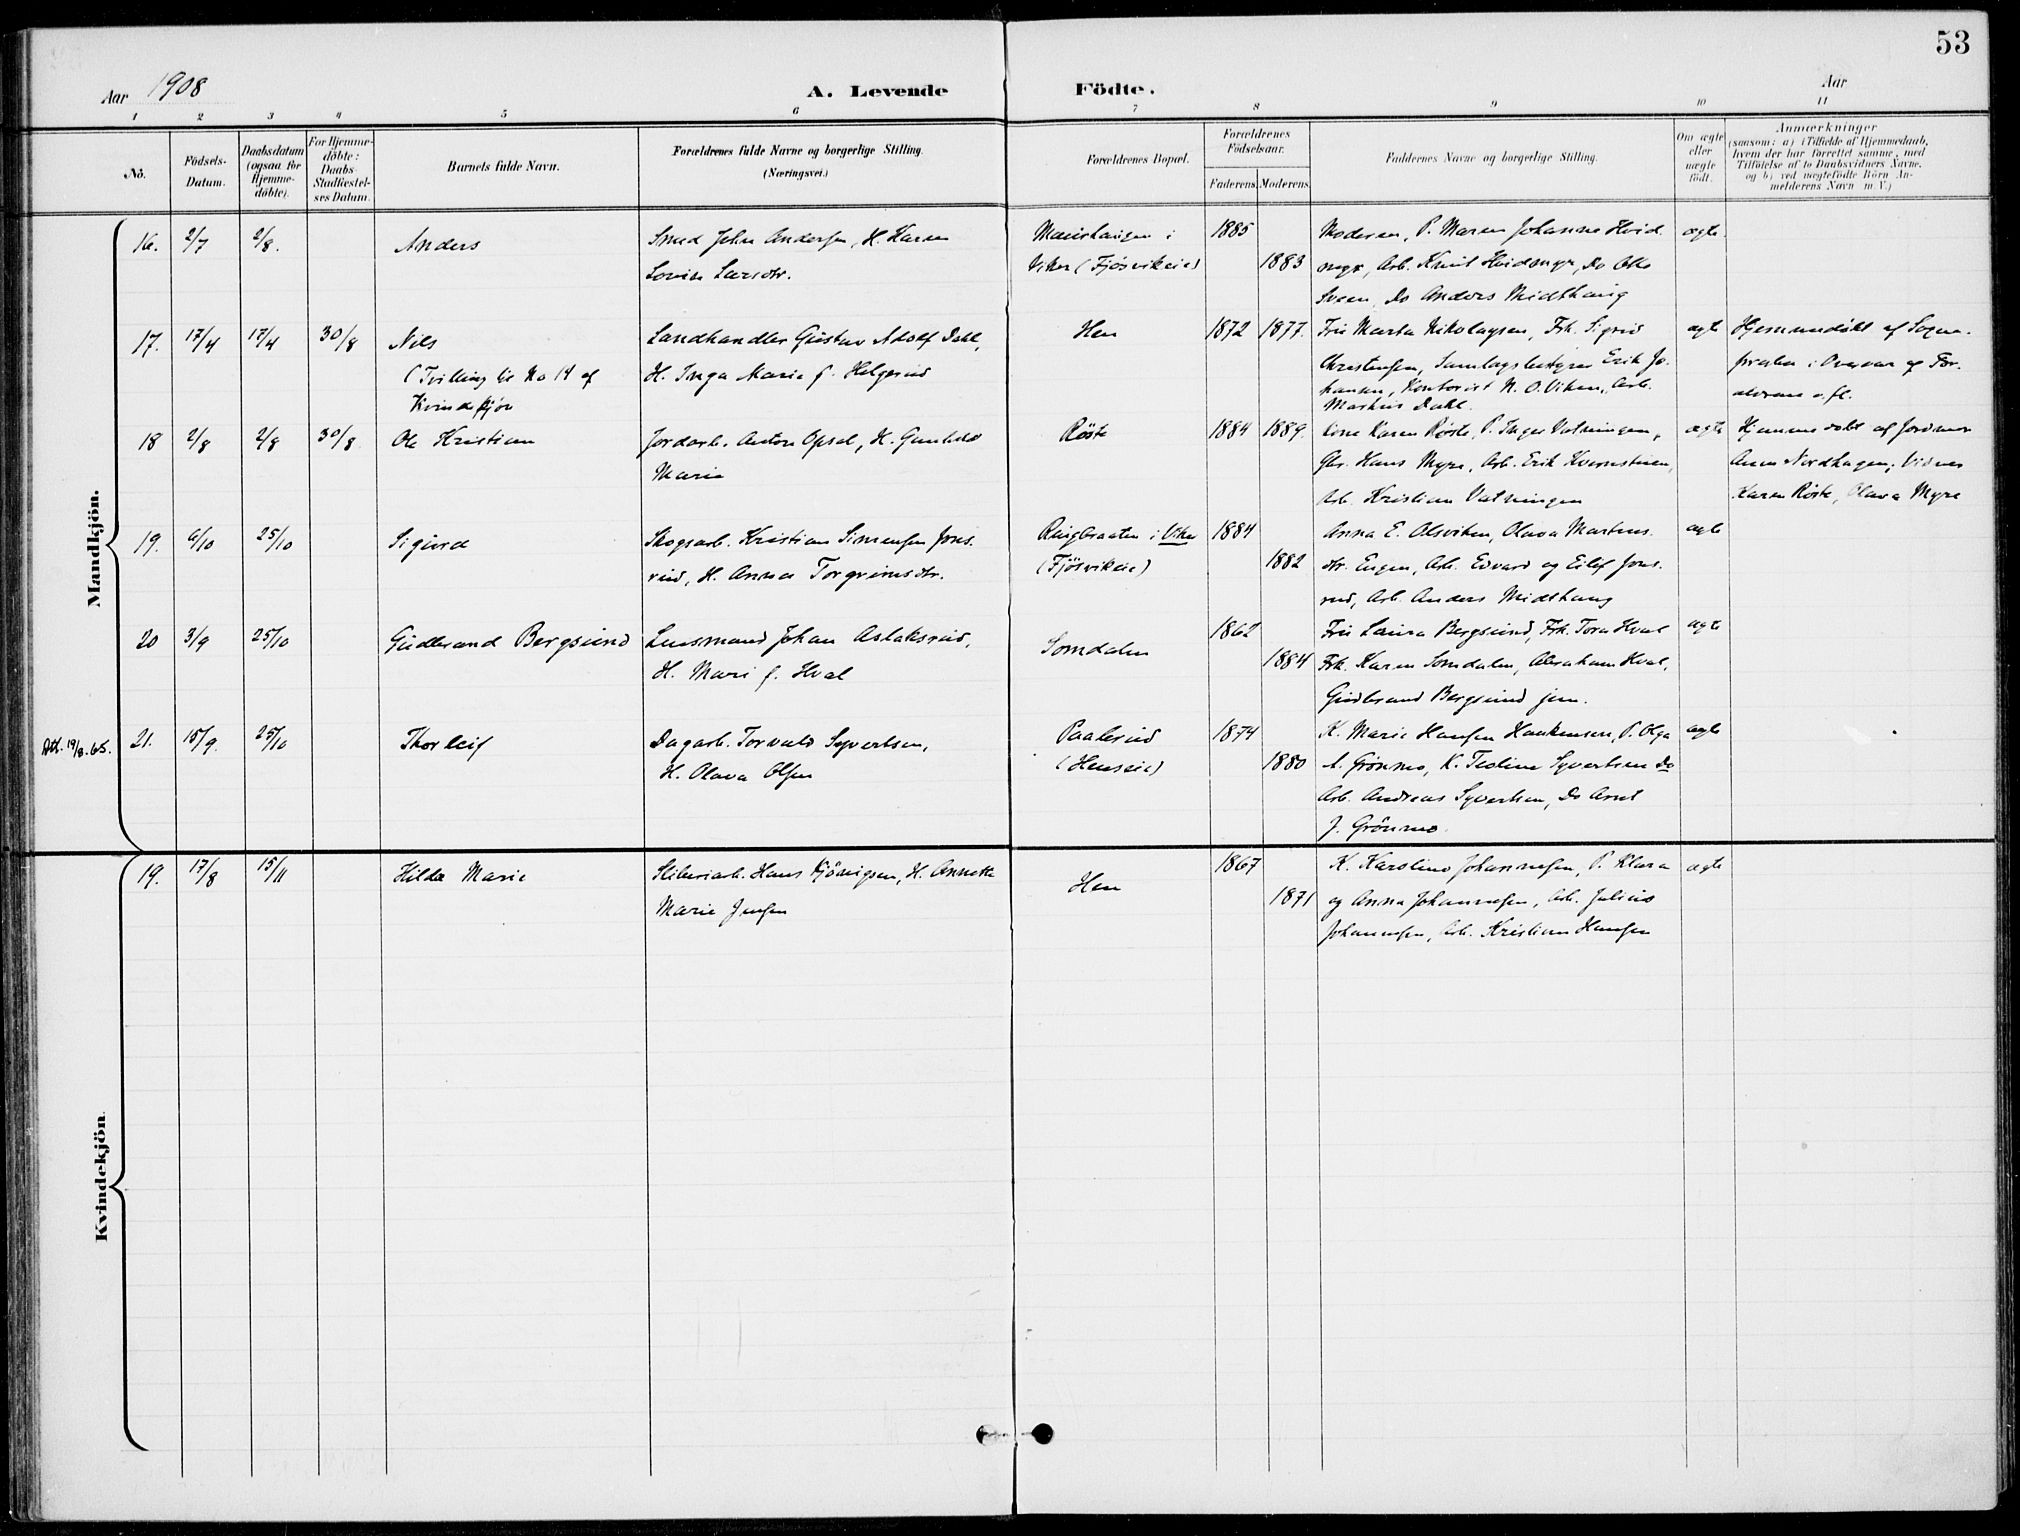 53
Aar 1908
A. Levende Födte.
Aar
1 2 3 4 5 6 7 8 9 10 11
No.
Födsels-Datum.
Daabsdatum (ogsaa for Hjemme-döbte).
For Hjemme-döbte: Daabs Stadfæstel-ses Datum.
Barnets fulde Navn.
Forældrenes fulde Navne og borgerlige Stilling. (Næringsvei.)
Forældrenes Bopæl.
Forældrenes Födselsaar.
Faderens Moderens
Faddernes Navne og borgerlige Stilling.
Om ægte eller uægte födt.
Anmærkninger
(saasom: a) i Tilfælde af Hjemmedaab, hvem der har forrettet samme, med Tilföielse af to Daabsvidners Navne, og b) ved uægtefödte Börn An-melderens Navn m. V.)
Mandkjön.
16. 2/7 2/8. Anders
Smed John Andersen, H. Karen
Lovise Larsdtr.
Viker (Fjösvikeie)
1885
1883
Moderen, P. Maren Johanne Hvid
myr, Arb. Knut Hvidmyr, Do Otto
Sveen, Do Anders Midthaug
ægte
17. 17/4 17/4 30/8 Nils
(Tvilling til No 14 af
Kvindekjön
Landhandler Gustav Adolf Dahl,
H. Inga Marie f. Helgerud
Hen
1872 1877.
Fru Marta Nikolaysen, Frk. Sigrid
Christensen, Samlagsbestyrer Erik Jo-
hansen, Kontorist N. O. Viken, Arb.
Markus Dahl.
ægte
Hjemmedöbt af Sogne-
presten i Overvær af For-
ældrene o. fl.
18 2/8 2/8 30/8 Ole Kristian
Jordarb. Anton Opsal, H. Gunhild
Marie
Röste
1884 1889.
Kone Karen Röste, P. Inger Vatningen,
Gbr. Hans Myre, Arb. Erik Kvernstuen,
Arb. Kristian Vatningen
ægte
Hjemmedöbt af Jordmor
Anne Nordhagen; Vidner
Karen Röste, Olava Myre
19. 6/10 25/10 Sigurd
Skogsarb. Kristian Simensen Jons-
rud, H. Anna Torgrimsdtr.
Rugbraaten i Viker
(Fjösvikeie)
1884
1882
Anna E. Olsviken, Olava Martins-
dtr. Engen, Arb. Edvard og Eilef Jons-
rud, Arb. Anders Midthaug
ægte
20 3/9 25/10 Gudbrand Bergsund
Lensmand Johan Aslaksrud,
H. Mari f. Hval
Somdalen
1862
1884
Fru Laura Bergsund, Frk. Tora Hval
Frk. Karen Somdalen, Abraham Hval,
Gudbrand Bergsund jun.
ægte
21. 15/9. 25/10 Thorleif
Dagarb. Torvald Syvertsen,
H. Olava Olsen
Paalerud
(Henseie)
1874
1880
K. Marie Hansen Haakensen, P. Olga
A. Grönmo, K. Teoline Syvertsen Do
Arb. Andreas Syvertsen, Do Arnt
J. Grönmo.
ægte
Kvindekjön.
19. 17/8 15/11 Hilda Marie
Sliberiarb. Hans Kjönigsen, H. Annette
Marie Jensen
Hen
1867
1871
K. Karoline Johannesen, P. Klara
og Anna Johannesen, Arb. Julius
Johannesen, Arb. Kristian Hansen
ægte